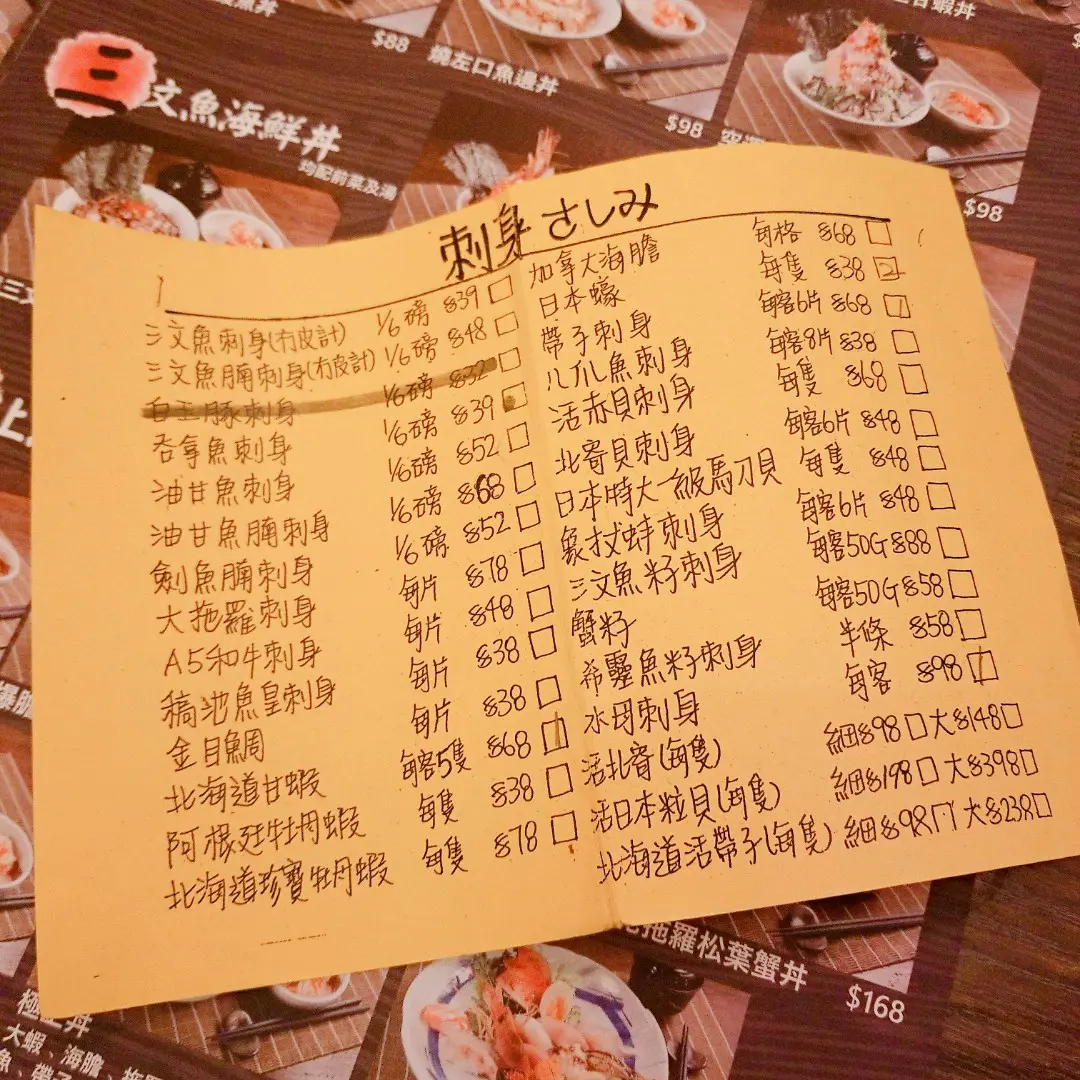 $88
燒左口魚邊丼
$98
$98
三文魚海鮮丼
均配前菜及湯
刺身 さしみ
三文魚刺身(冇皮計) 1/6磅 $39 □
三文魚腩刺身(冇皮計) 1/6磅 $48 □
白玉豚刺身 1/6磅 $32 □
吞拿魚刺身 1/6磅 $39 □
油甘魚刺身 1/6磅 $52 □
油甘魚腩刺身 1/6磅 $68 □
劍魚腩刺身 1/6磅 $52 □
大拖羅刺身 每片 $78 □
A5和牛刺身 每片 $48 □
稿池魚皇刺身 每片 $38 □
金目鯛 每片 $38 □
北海道甘蝦 每客5隻 $68 □
阿根廷牡丹蝦 每隻 $38 □
北海道珍寶牡丹蝦 每隻 $78 □
加拿大海膽 每格 $68 □
日本蠔 每隻 $38 2
帶子刺身 每客6片 $68 □
八爪魚刺身 每客8片 $38 □
活赤貝刺身 每隻 $68 □
北寄貝刺身 每客6片 $48 □
日本特大一級馬刀貝 每隻 $48 □
象拔蚌刺身 每客6片 $48 □
三文魚籽刺身 每客50G $88 □
蟹籽 每客50G $58 □
希靈魚籽刺身 半條 $58 □
水母刺身 每客 $98 □
活北寄(每隻) 細$98 □ 大$148 □
活日本粒貝(每隻) 細$198 □ 大$398 □
北海道活帶子(每隻) 細$98 □ 大$238 □
拖羅松葉蟹丼
$168
大蝦、海膽、